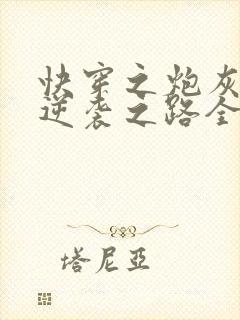 快穿之炮灰
逆袭之路全
塔尼亞